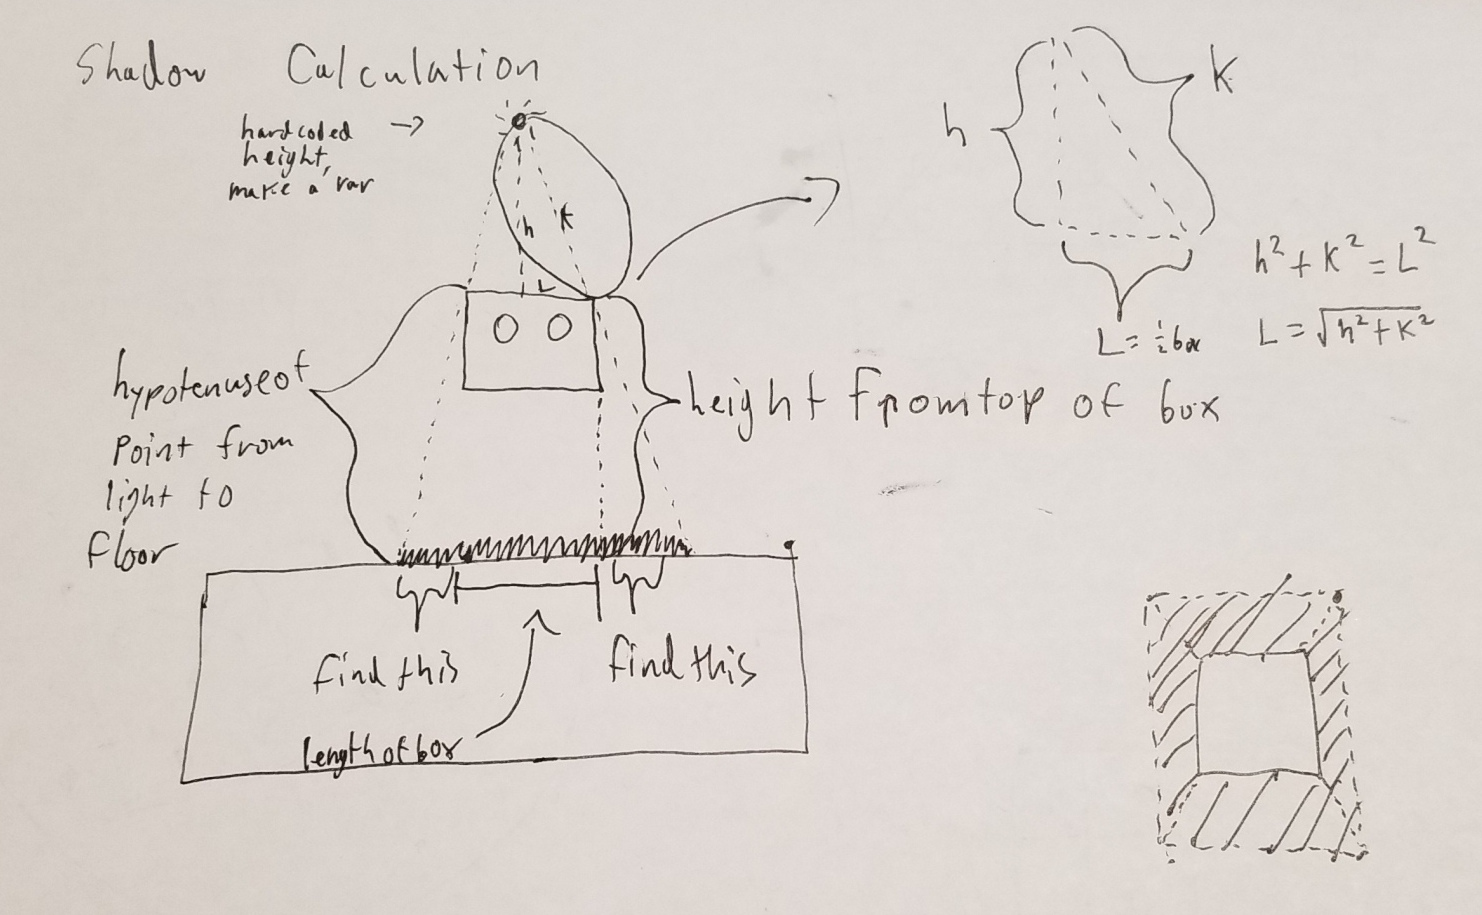 Shadow Calculation
hardcoded →
height,
make a var
h
K
h
K
L
h² + K² = L²
L = ½ box
L = √h² + K²
hypotenuse of
point from
light to
floor
height from top of box
find this
find this
length of box